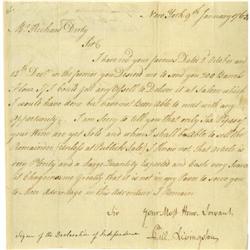 New York 9th January 1762
Mr Richard Derby
Sir
I have rec'd your favours Dated 2 October and
12th Decr in the former you Desired me to send you 200 Barrels
Flour if I could sell any Effects to Deliver it at Salem which
I would have done but have not been able to meet with any
Opportunity. I am Sorry to tell you that only Six Pipes of
your Wine are yet Sold and when I shall be able to sell the
remainder (unless at Publick Sale) I know not that article is
very Plenty and a large Quantity Expected and Cash very Scarce
I Chagrin you Greatly that it is not in my Power to Serve you
to More Advantage in this Adventure I Remain
Sir Your Most Hum. Servant
Phil. Livingston
Signer of the Declaration of Independence